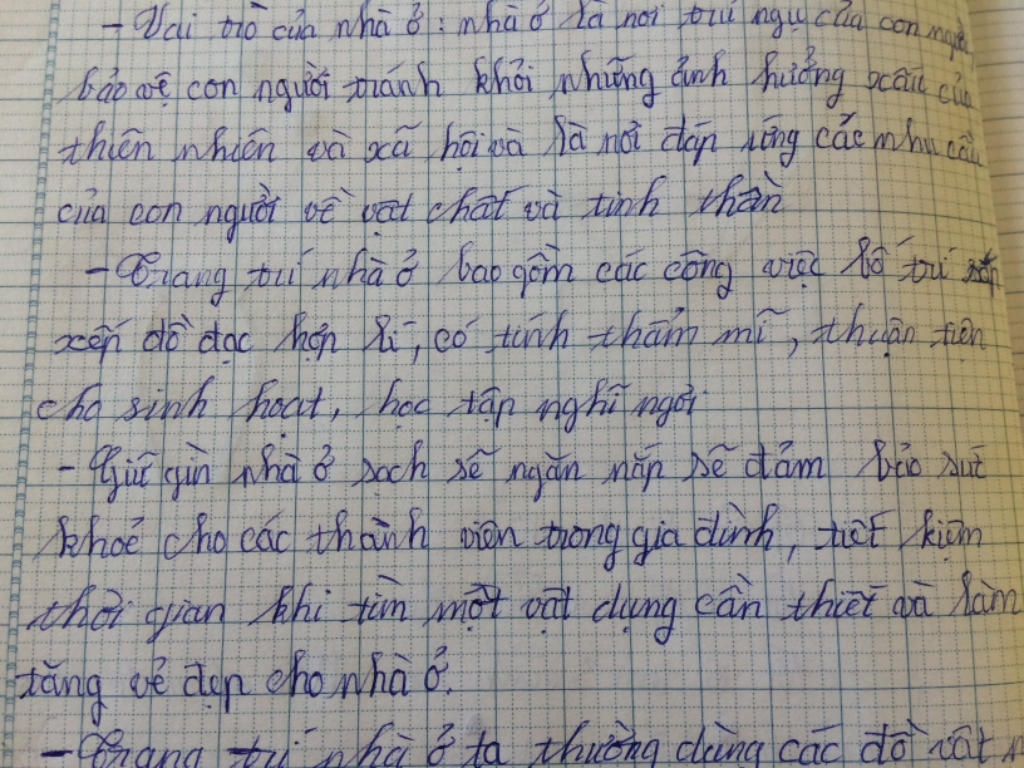 - Vai trò của nhà ở: nhà ở là nơi trú ngụ của con người
bảo vệ con người tránh khỏi những ảnh hưởng xấu của
thiên nhiên và xã hội và là nơi đáp ứng các nhu cầu
của con người về vật chất và tinh thần
- Trang trí nhà ở bao gồm các công việc bố trí sắp
xếp đồ đạc hợp lí, có tính thẩm mĩ, thuận tiện
cho sinh hoạt, học tập nghĩ ngơi
- Giữ gìn nhà ở sạch sẽ ngăn nắp sẽ đảm bảo sức
khoẻ cho các thành viên trong gia đình, tiết kiệm
thời gian khi tìm một vật dụng cần thiết và làm
tăng vẻ đẹp cho nhà ở.
- Trang trí nhà ở ta thường dùng các đồ vật